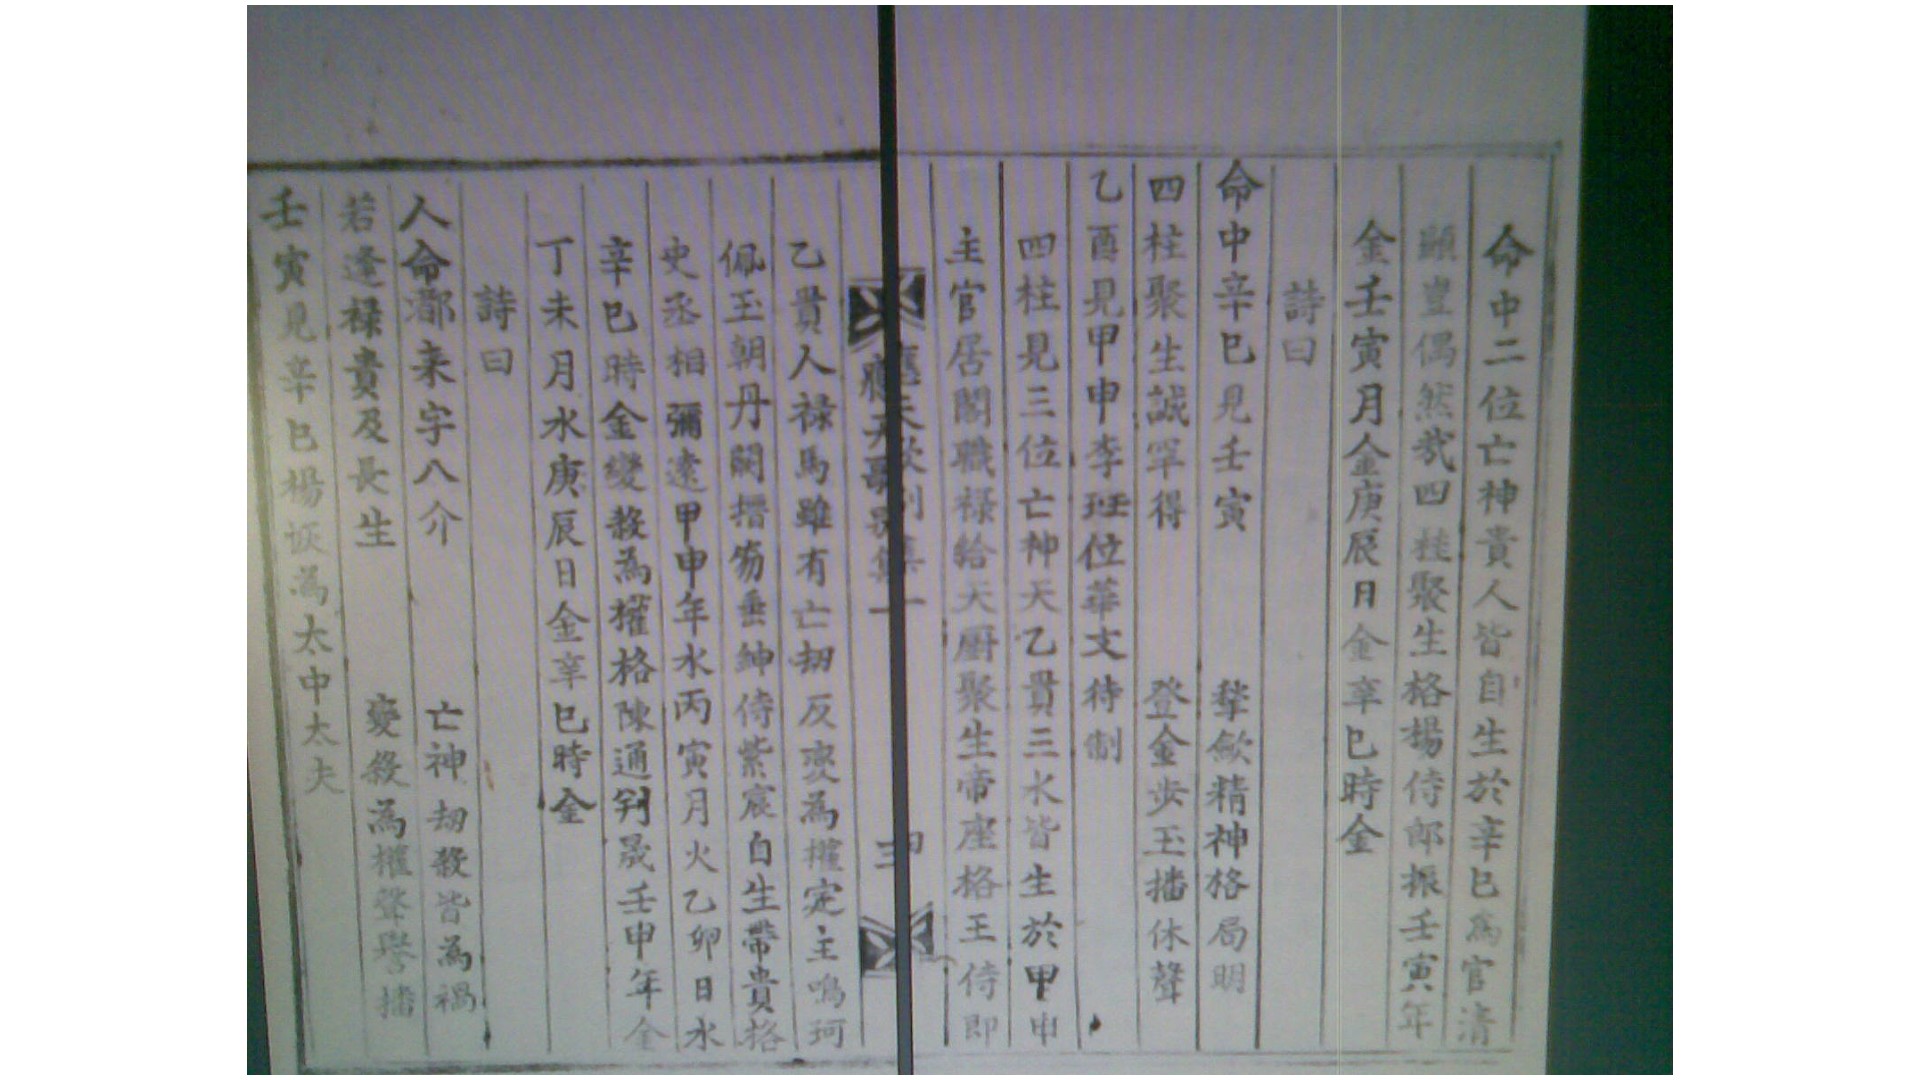 命中二位亡神貴人皆自生於辛巳為官清
顯豈偶然哉四柱聚生格楊侍郎振壬寅年
金壬寅月金庚辰日金辛巳時金
詩曰
命中辛巳見壬寅 擎歛精神格局明
四柱聚生誠罕得 登金步玉播休聲
乙酉見甲申李班位華文待制
四柱見三位亡神天乙貴三水皆生於甲申
主官居閣職祿給天厨聚生帝座格王侍郎
應天歌別集一 四
應天歌別集一 三
乙貴人祿馬雖有亡刼反变為權定主鳴珂
佩玉朝丹闕搢笏垂紳侍紫宸自生帶貴格
史丞相彌遠甲申年水丙寅月火乙卯日水
辛巳時金變殺為權格陳通判晟壬申年金
丁未月水庚辰日金辛巳時金
詩曰
人命都来字八介 亡神刼殺皆為禍
若逢祿貴及長生 變殺為權聲譽播
壬寅見辛巳楊恢為太中太夫